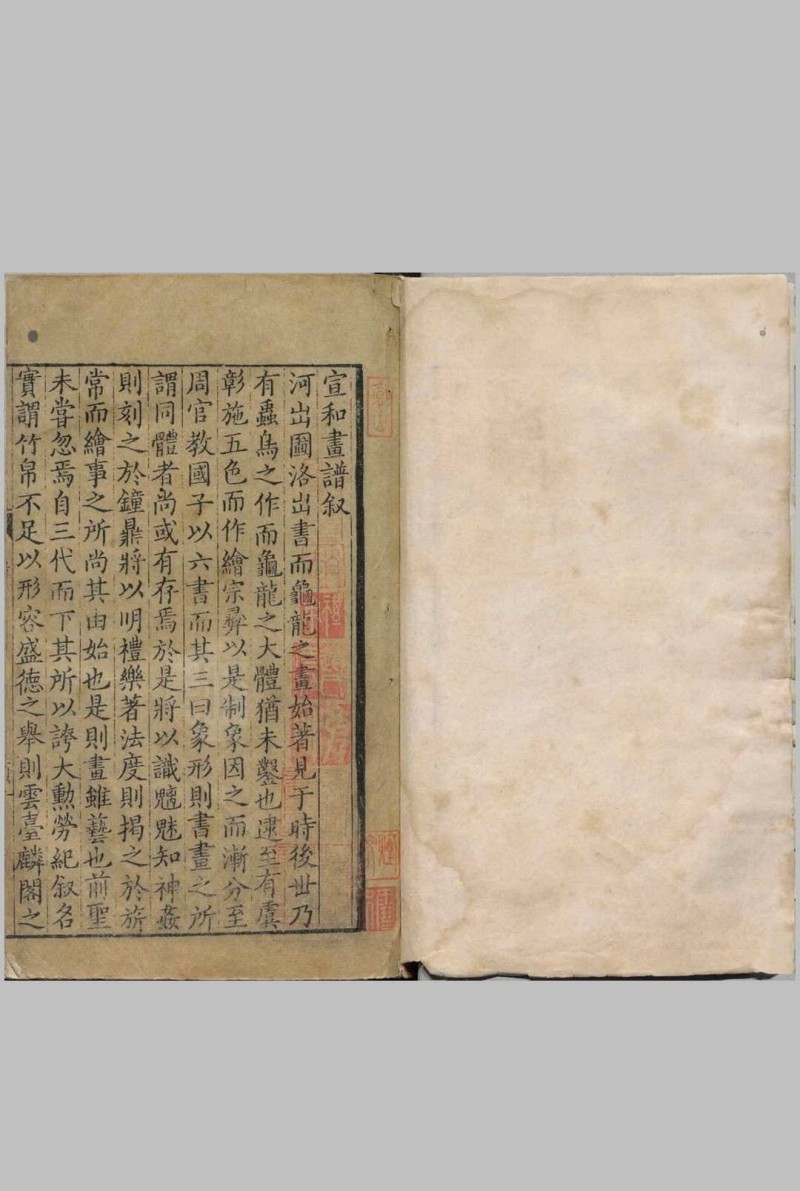 宣和畫譜叙
河出圖洛出書而龜龍之畫始著見于時後世乃
有蟲鳥之作而龜龍之大體猶未鑿也逮至有虞
彰施五色而作繪宗彝以是制象因之而漸分至
周官教國子以六書而其三曰象形則書畫之所
謂同體者尚或有存焉於是將以識魑魅知神姦
則刻之於鐘鼎將以明禮樂著法度則揭之於旂
常而繪事之所尚其由始也是則畫雖藝也前聖
未甞忽焉自三代而下其所以誇大勲勞紀叙名
實謂竹帛不足以形容盛徳之舉則雲臺麟閣之